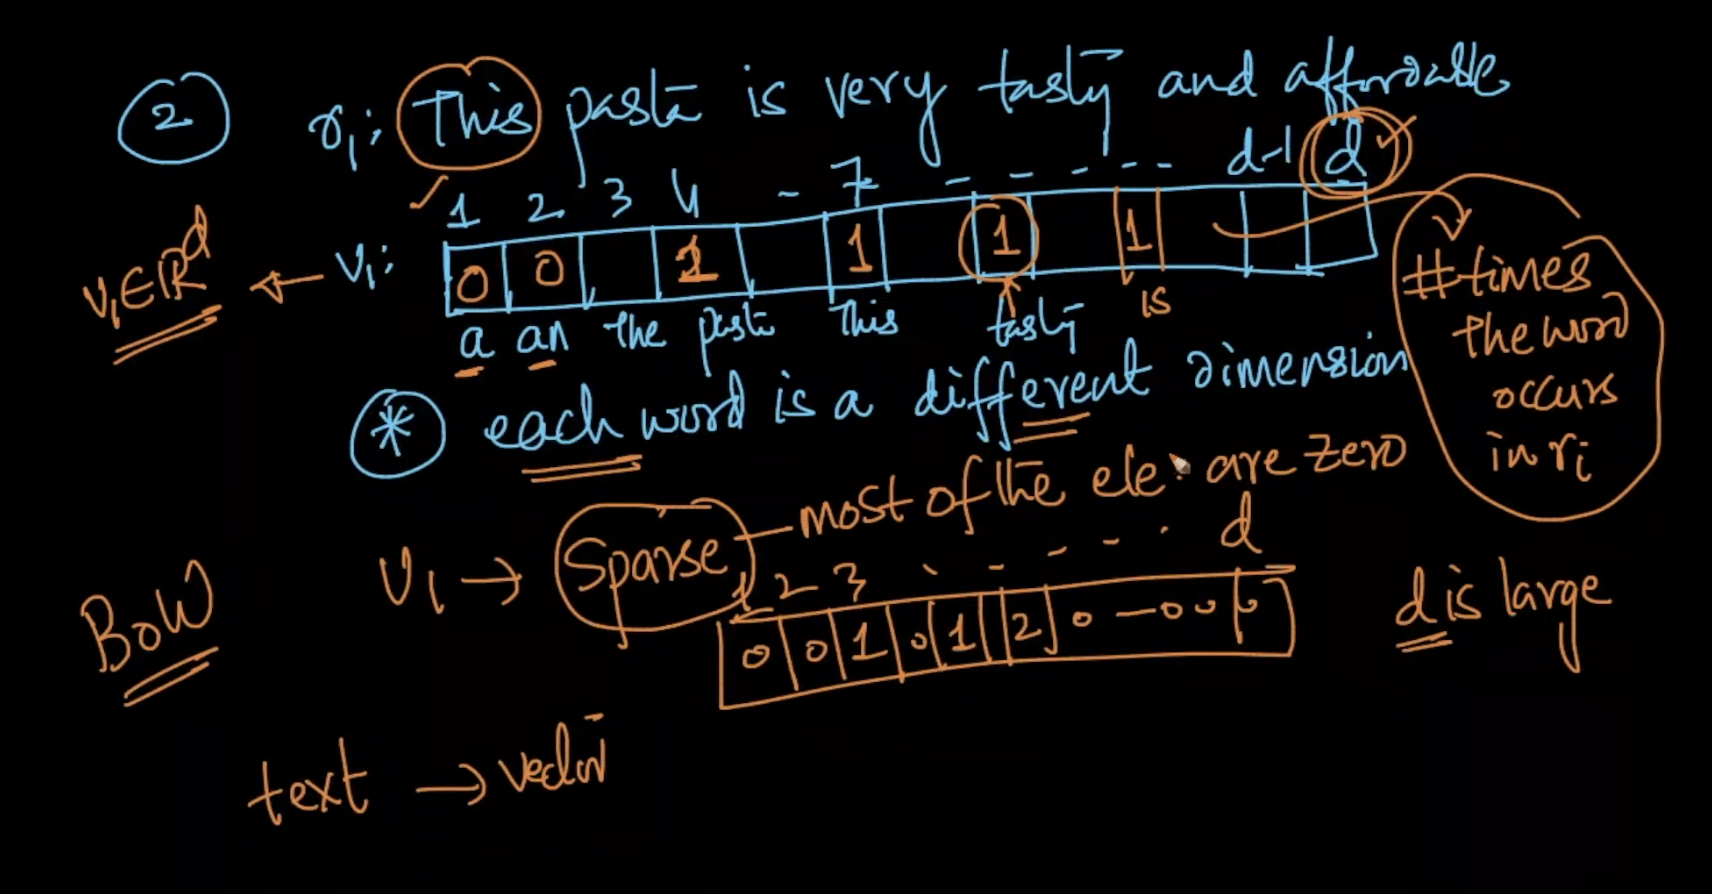 2 r1: This pasta is very tasty and affordable
1 2 3 4 - 7 - - - - - d-1 d
v1 ∈ ℝ^d ← v1: 0 0 1 1 1 1
a an the pasta This tasty is
# times
the word
occurs
in ri
* each word is a different dimension
v1 → Sparse — most of the ele. are zero
1 2 3 - - - - d
0 0 1 0 1 2 0 — 0 0 0
d is large
BOW
text → vector